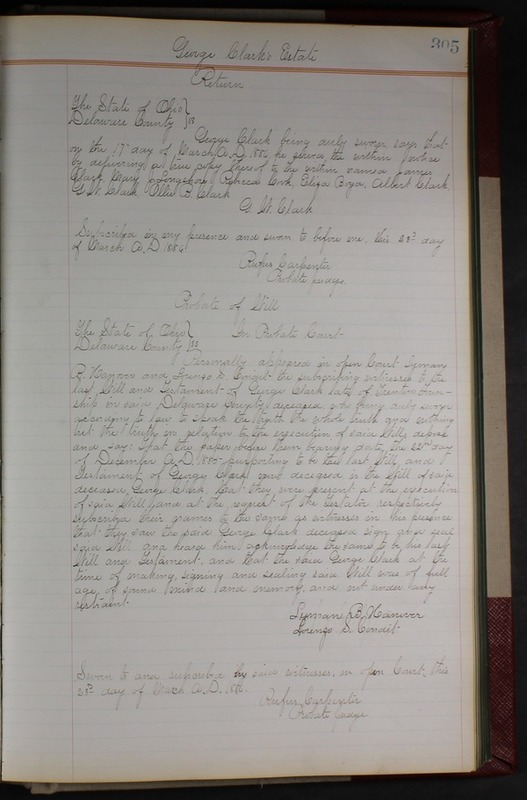 305
George Clark's Estate
Return
The State of Ohio }
Delaware County } ss
George Clark being duly sworn says that
on the 17" day of March A.D. 1886 he served the within Notice
by delivering a true copy thereof to the within named James
Clark, Mary Longshore, Rebecca Cook, Eliza Clark, Albert Clark,
G. W. Clark, Ollie B. Clark
G. W. Clark
Subscribed in my presence and sworn to before me, this 23d day
of March A.D. 1886.
Rufus Carpenter
Probate Judge.
Probate of Will
The State of Ohio } In Probate Court
Delaware County } ss
Personally appeared in open Court Lyman
B. Hanover and Lorenzo S. Condit the subscribing witnesses to the
last Will and Testament of George Clark late of Trenton Town-
ship in said Delaware County, deceased, who being duly sworn
according to law to speak the truth the whole truth and nothing
but the truth in relation to the execution of said Will, depose
and say: that the paper before them bearing date the 22nd day
of December A.D. 1880 purporting to be the last Will and
Testament of George Clark now deceased is the Will of said
deceased George Clark, that they were present at the execution
of said Will, and at the request of the testator respectively
subscribed their names to the same as witnesses in his presence
that they saw the said George Clark deceased sign and seal
said Will and heard him acknowledge the same to be his last
Will and Testament, and that the said George Clark at the
time of making, signing and sealing said Will was of full
age, of sound mind and memory, and not under any
restraint.
Lyman B. Hanover
Lorenzo S. Condit
Sworn to and subscribed by said witnesses in open Court, this
23d day of March A.D. 1886.
Rufus Carpenter
Probate Judge